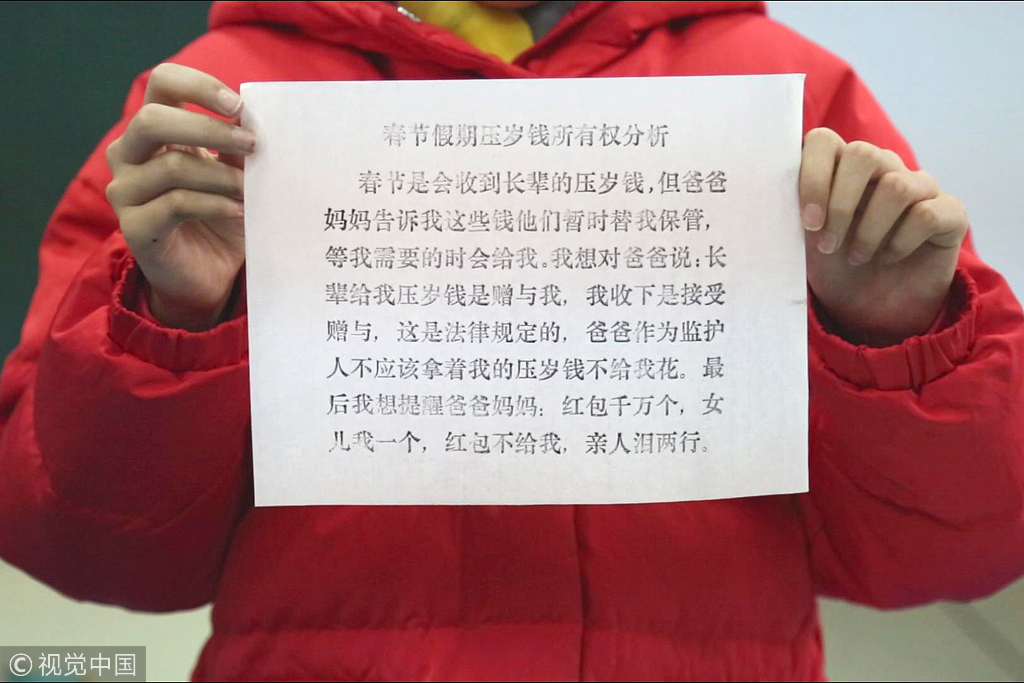 春节假期压岁钱所有权分析
春节是会收到长辈的压岁钱,但爸爸
妈妈告诉我这些钱他们暂时替我保管,
等我需要的时会给我。我想对爸爸说:长
辈给我压岁钱是赠与我,我收下是接受
赠与,这是法律规定的,爸爸作为监护
人不应该拿着我的压岁钱不给我花。最
后我想提醒爸爸妈妈:红包千万个,女
儿我一个,红包不给我,亲人泪两行。
©视觉中国